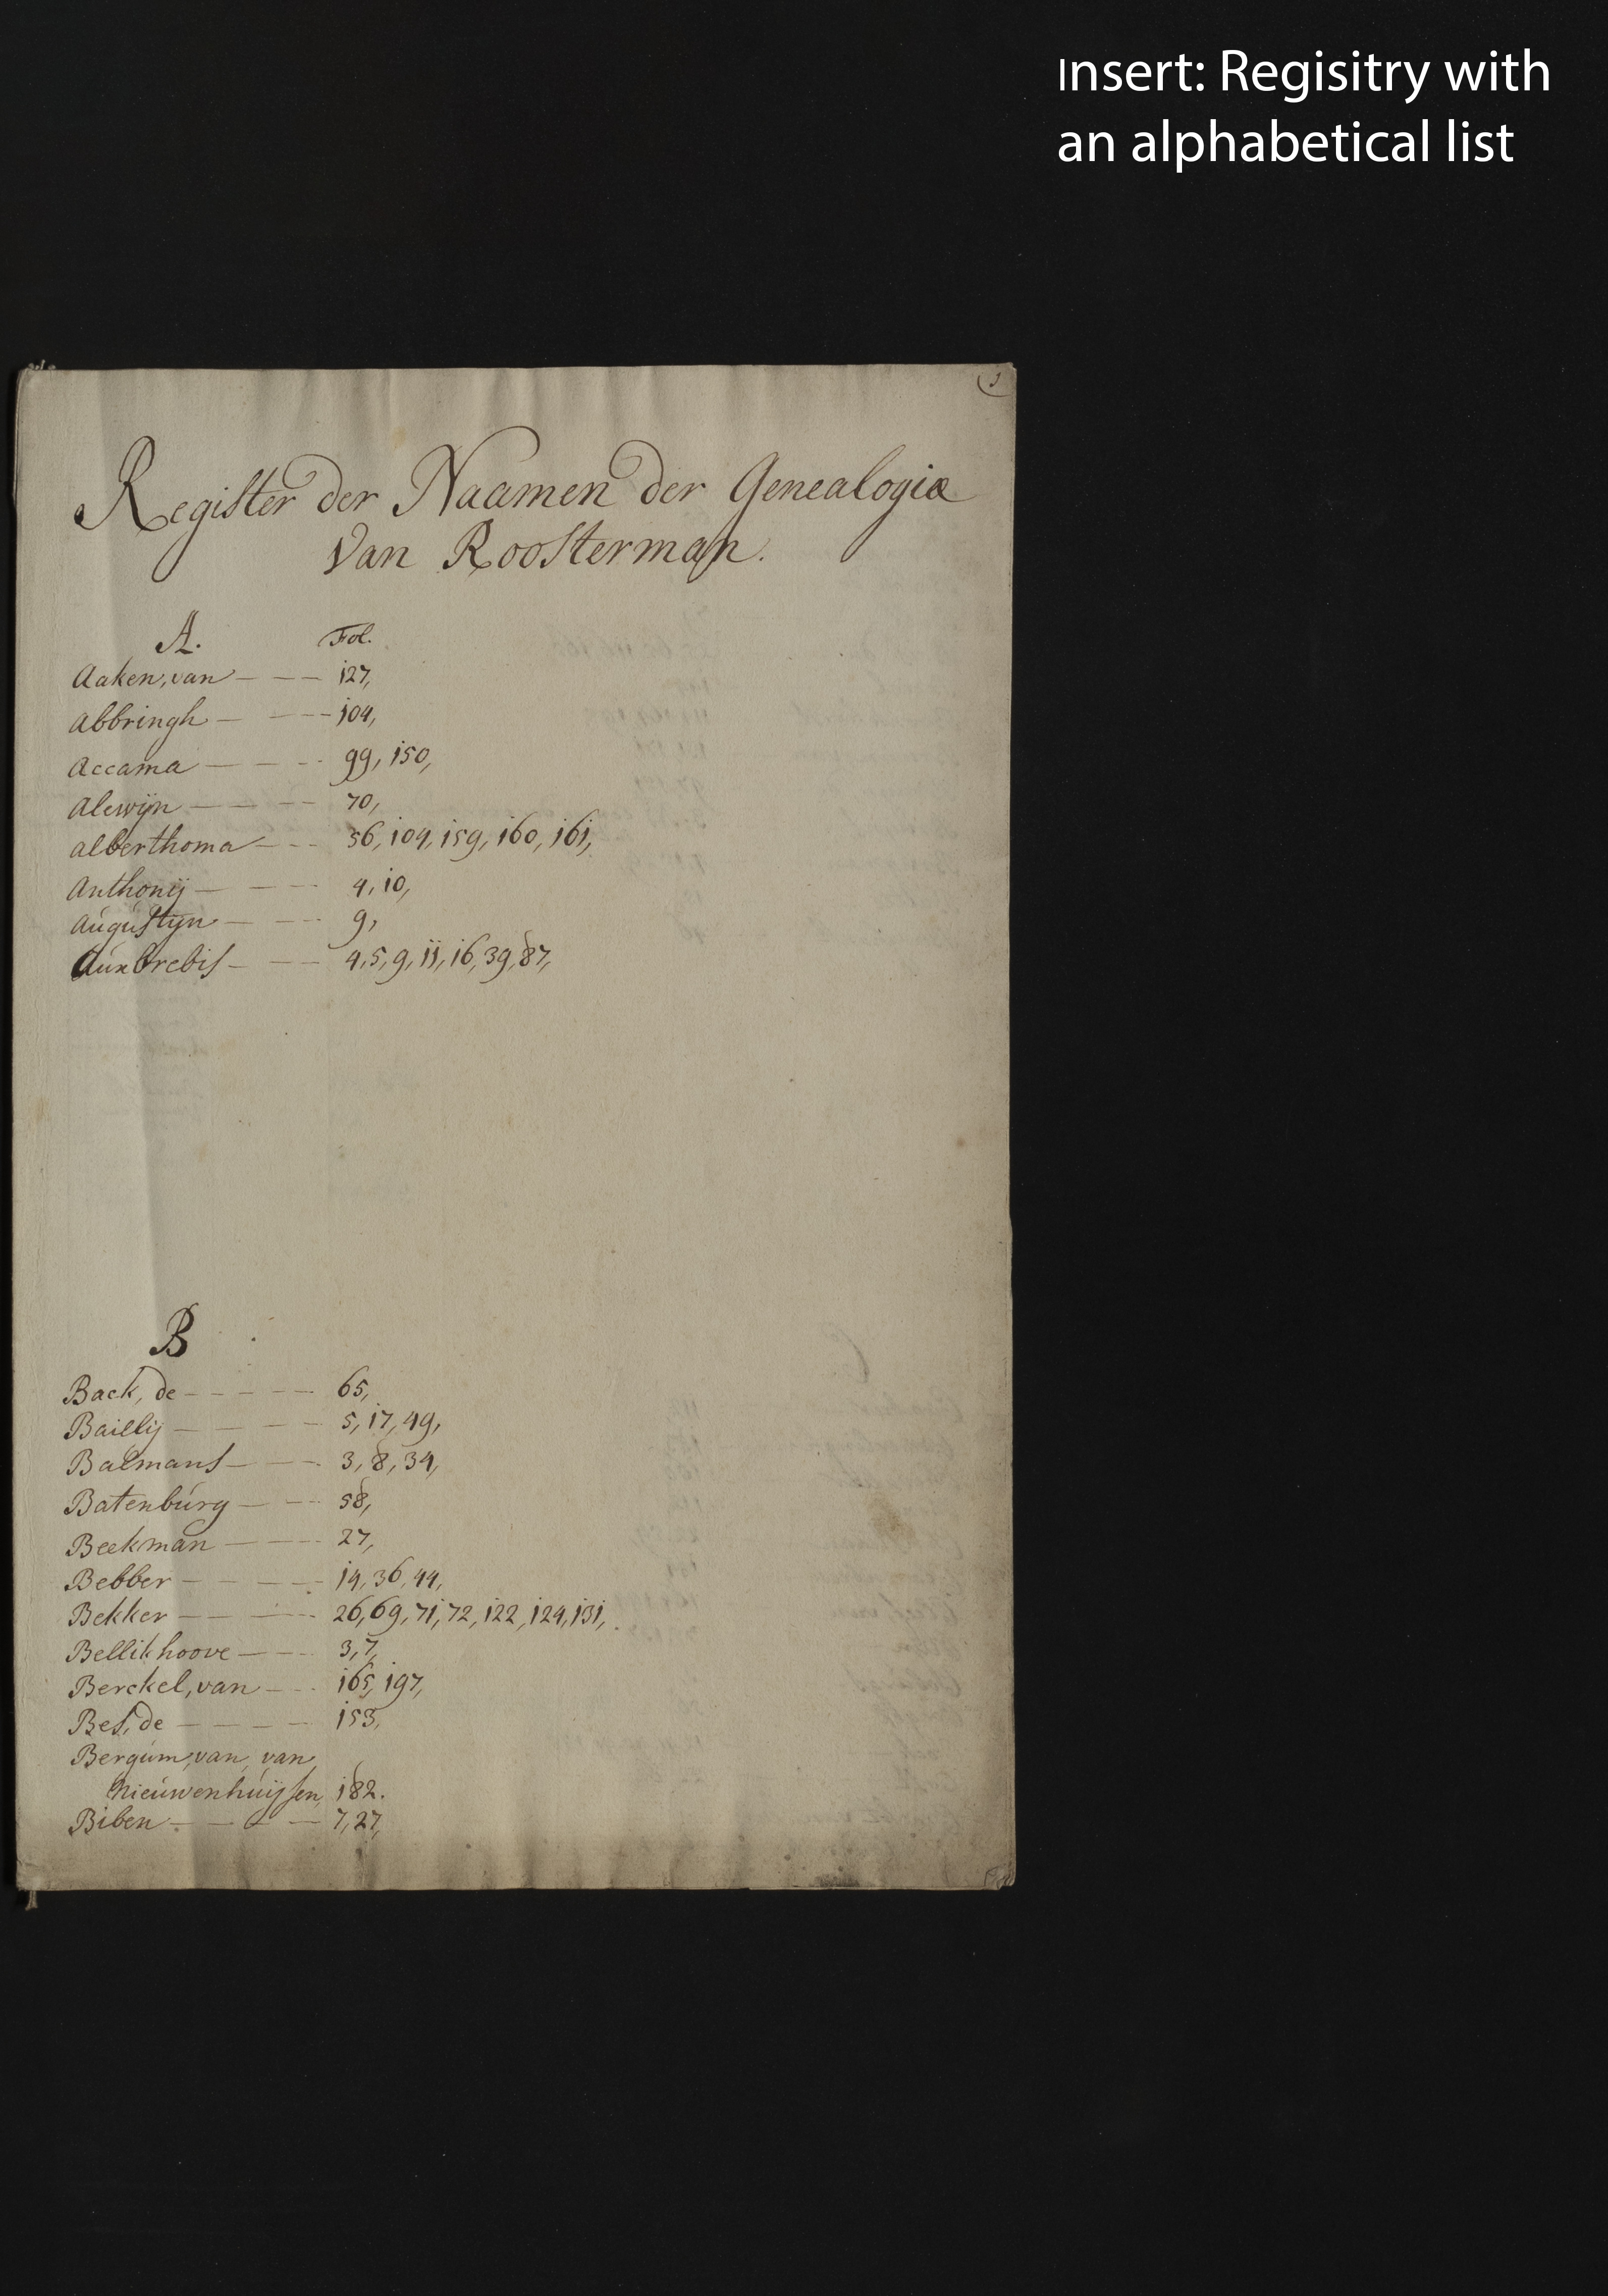 Insert: Regisitry with
an alphabetical list
Register der Naamen der Genealogiæ
Van Roosterman.
A. Fol.
Aaken, van - - - 127,
Abbringh - - - 104,
Accama - - - 99, 150,
Alewijn - - - 70,
Alberthoma - - 56, 104, 159, 160, 161,
Anthonij - - - 4, 10,
Augustyn - - - 9,
Auxbrebis - - - 4, 5, 9, 11, 16, 39, 87,
B
Back, de - - - - - 65,
Baillij - - - - 5, 17, 49,
Balmans - - - 3, 8, 34,
Batenburg - - - 58,
Beekman - - - 27,
Bebber - - - - 14, 36, 44,
Bekker - - - - 26, 69, 71, 72, 122, 124, 131,
Bellikhoove - - - 3, 7,
Berckel, van - - - 165, 197,
Bes, de - - - - 153,
Bergum, van, van
Nieuwenhuijsen, 182.
Biben - - - - 7, 27,